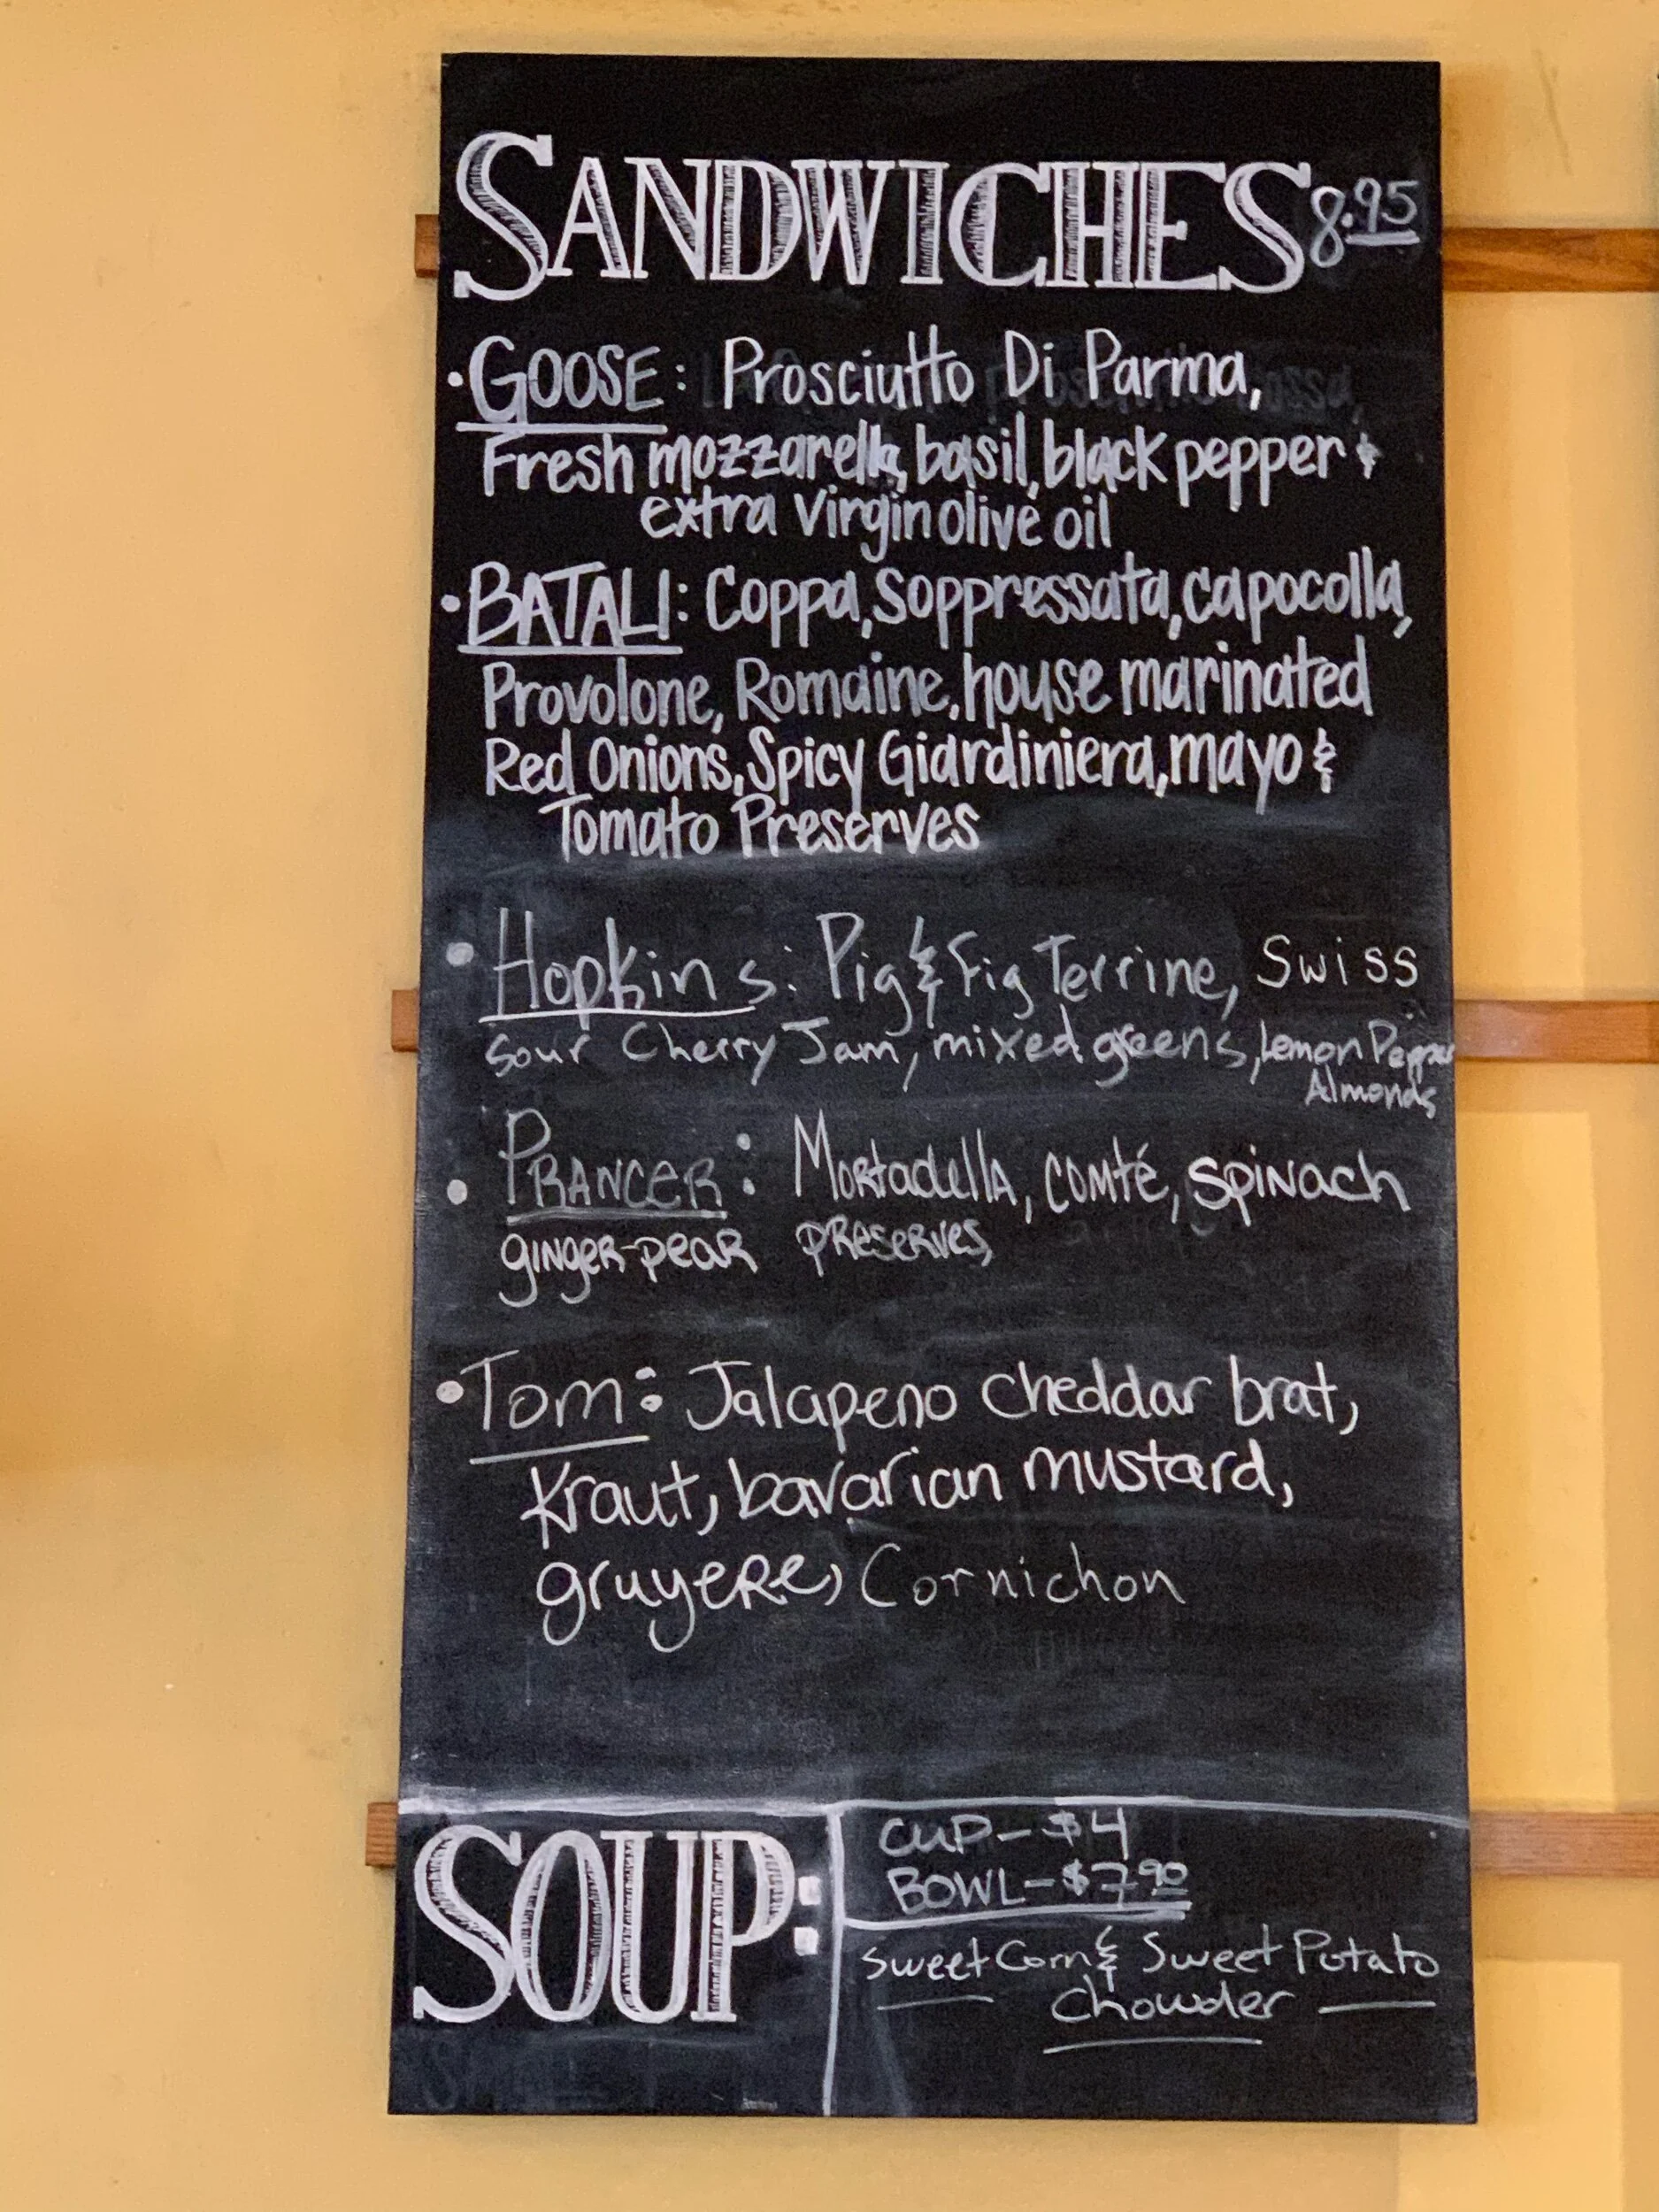 SANDWICHES 8.95
• GOOSE: Prosciutto Di Parma,
Fresh mozzarella, basil, black pepper &
extra virgin olive oil
• BATALI: Coppa, Soppressata, capocolla,
Provolone, Romaine, house marinated
Red Onions, Spicy Giardiniera, mayo &
Tomato Preserves
• Hopkins: Pig & Fig Terrine, Swiss
Sour Cherry Jam, mixed greens, Lemon Pepper
Almonds
• PRANCER: Mortadella, comté, spinach
ginger-pear preserves,
• Tom: Jalapeno cheddar brat,
Kraut, bavarian mustard,
gruyere, Cornichon
SOUP:
CUP - $4
BOWL - $7.90
Sweet Corn & Sweet Potato
Chowder